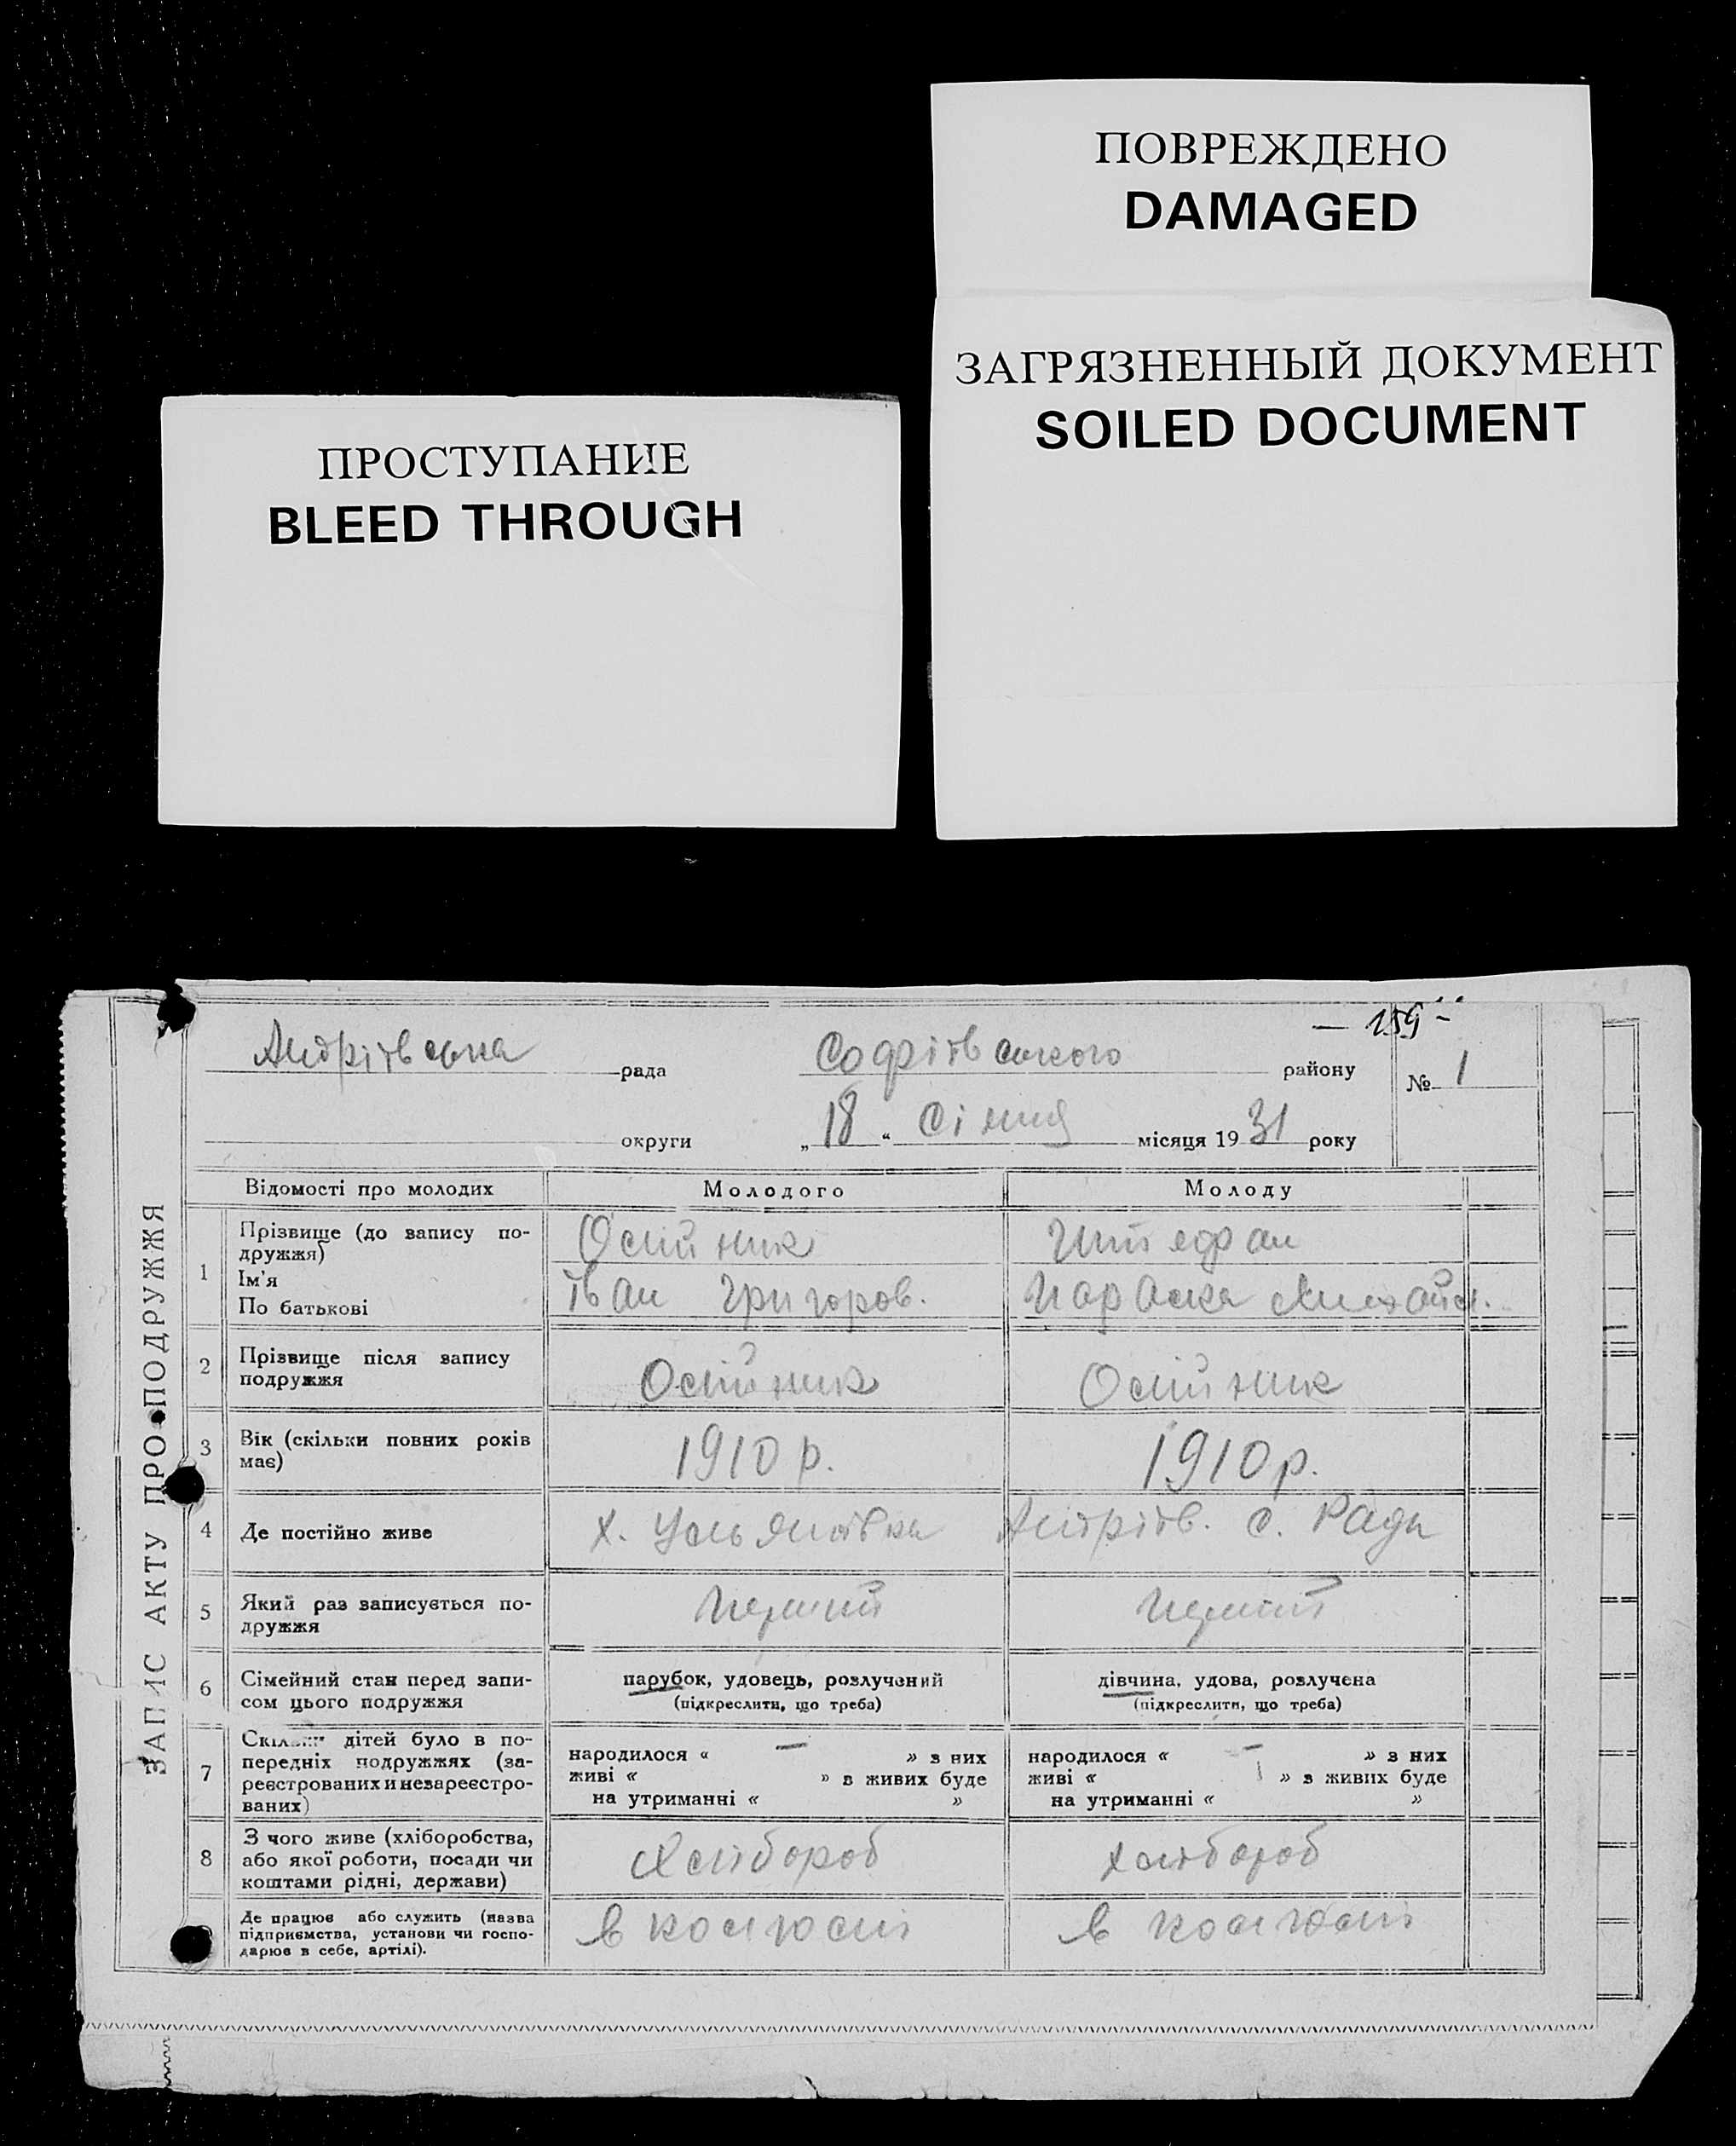 ПОВРЕЖДЕНО
DAMAGED
ЗАГРЯЗНЕННЫЙ ДОКУМЕНТ
SOILED DOCUMENT
ПРОСТУПАНИЕ
BLEED THROUGH
ЗАПИС АКТУ ПРО ПОДРУЖЖЯ
— 159 –
Андріївська рада Софіївського району № 1
округи „ 18 “ Січня місяця 19 31 року
Відомості про молодих Молодого Молоду
1 Прізвище (до запису подружжя) Олійник
Ім'я Іван Григоров. Параска Михайл.
По батькові
2 Прізвище після запису Олійник Олійник
подружжя
3 Вік (скільки повних років 1910 р. 1910 р.
має)
4 Де постійно живе х. Ульянівка Андріїв. с. Рада
5 Який раз записується по- Перший Перший
дружжя
6 Сімейний стан перед запи- парубок, удовець, розлучений дівчина, удова, розлучена
сом цього подружжя (підкреслити, що треба) (підкреслити, що треба)
7 Скільки дітей було в по- народилося « — » з них народилося « — » з них
передніх подружжях (за- живі « » в живих буде живі « » в живих буде
реєстрованих и незареєстро- на утриманні « » на утриманні « »
ваних)
8 З чого живе (хліборобства, Хлібороб хлібороб
або якої роботи, посади чи
коштами рідні, держави)
Де працює або служить (назва в колгоспі в колгоспі
підприємства, установи чи госпо-
дарює в себе, артілі).